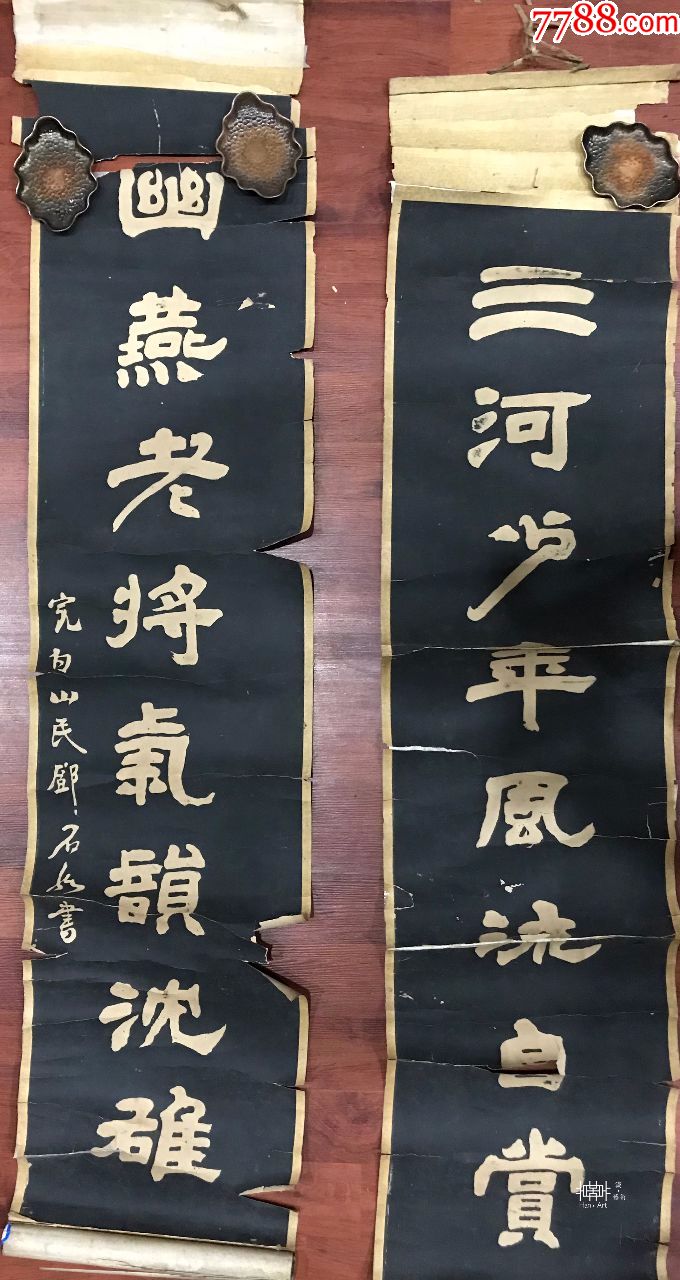 7788.com
三河少年風流自賞
幽燕老將氣韻沈雄
完白山民鄧石如書
Han·Art